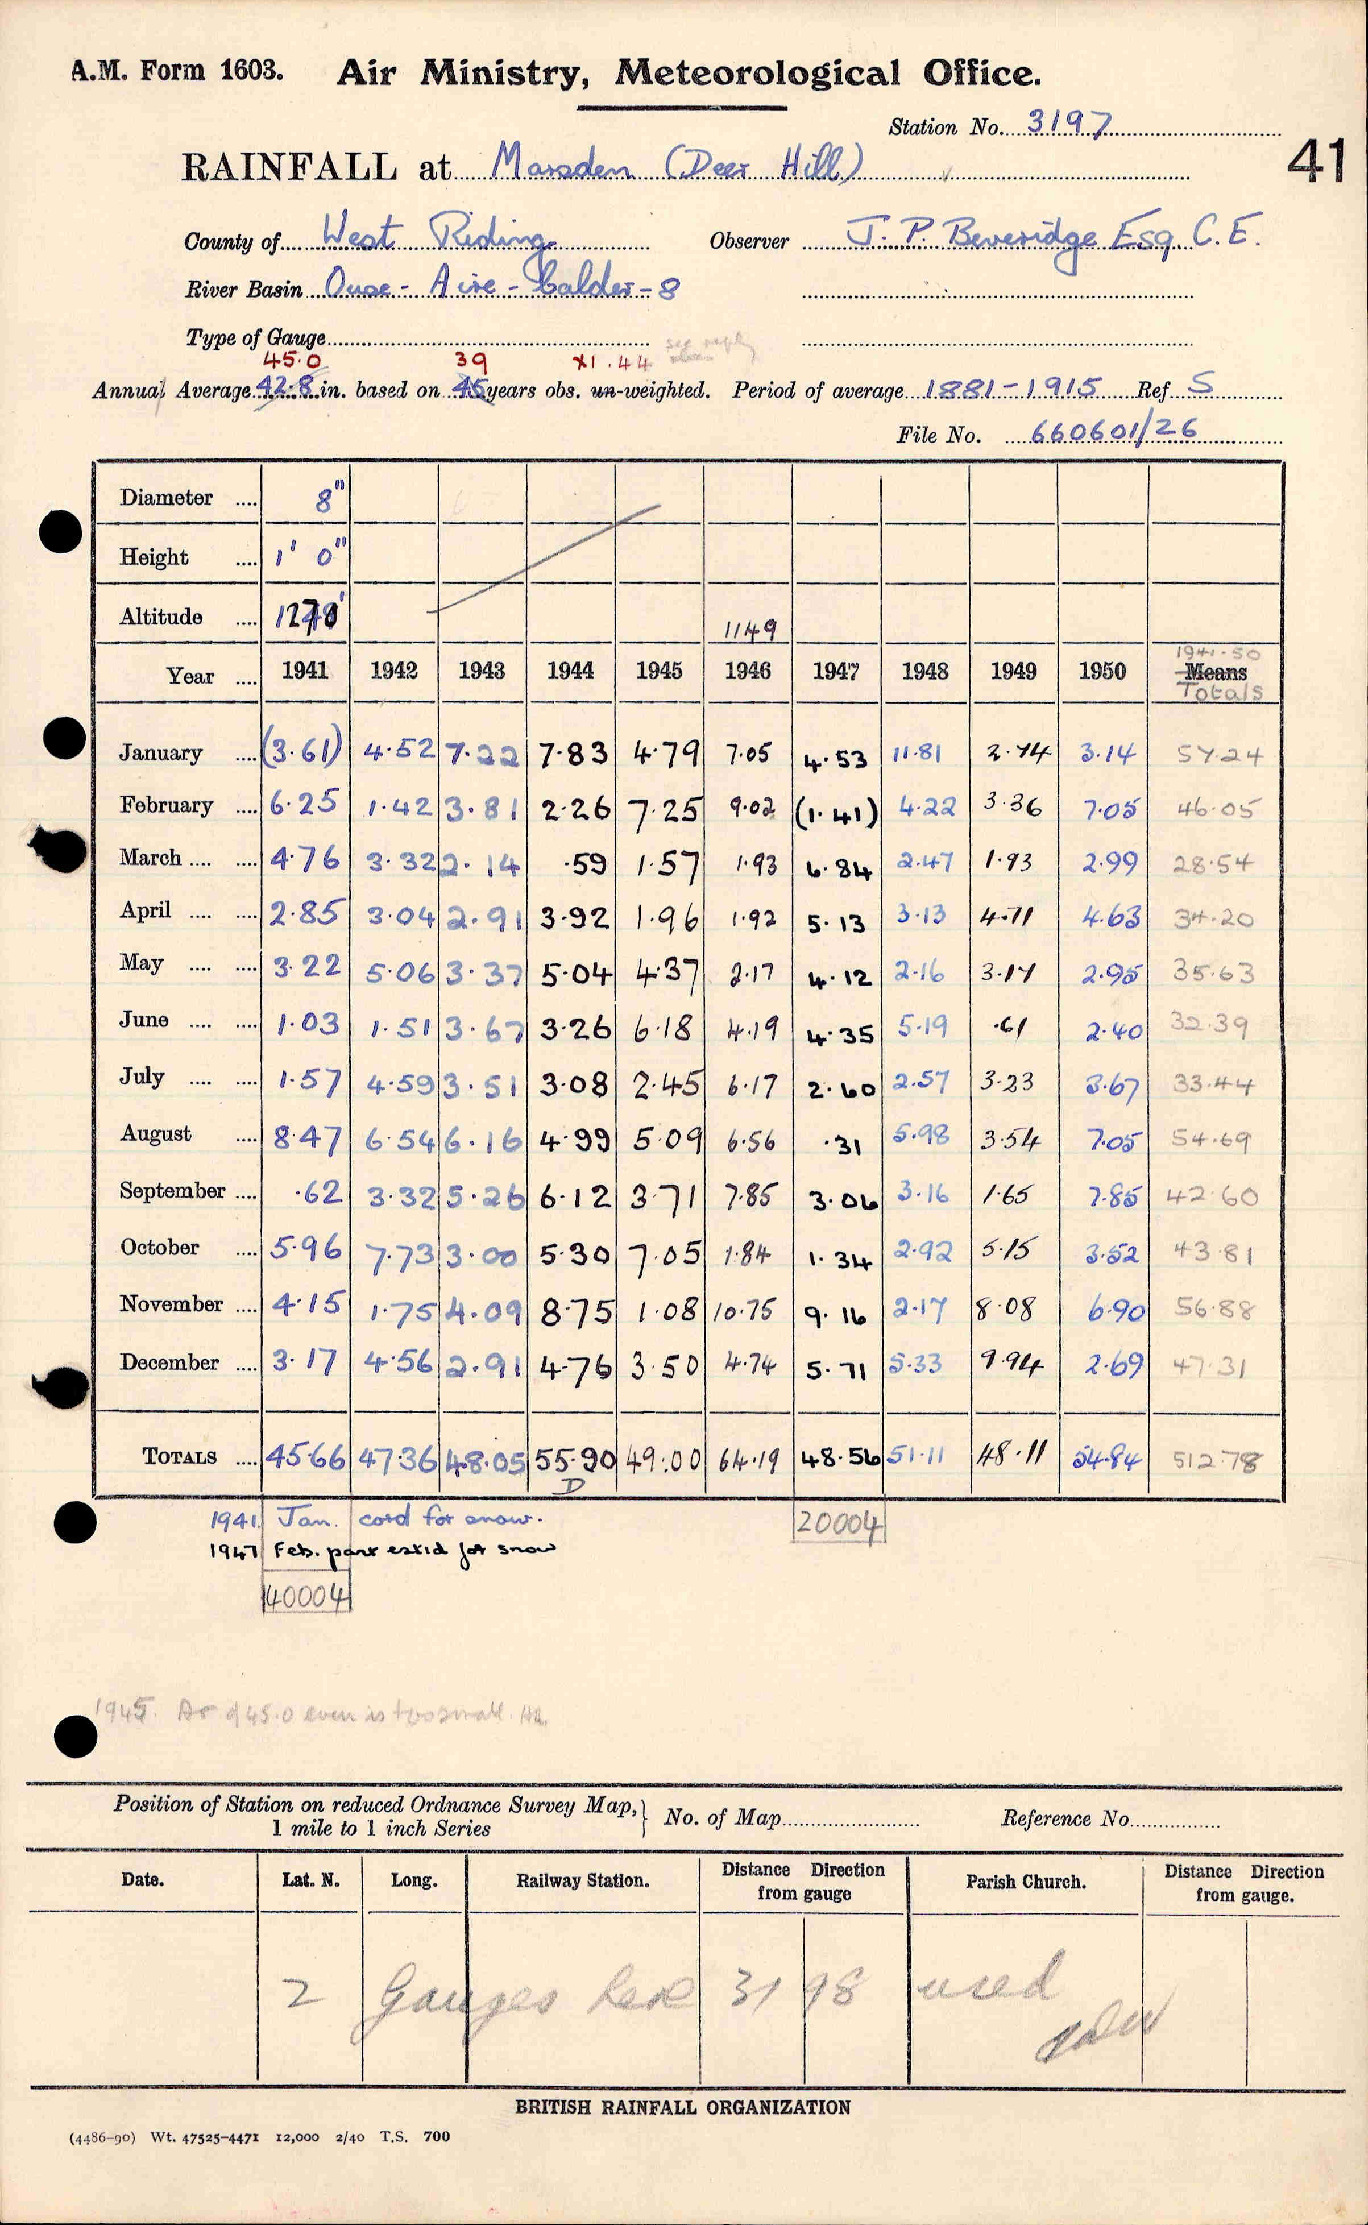 A.M. Form 1603. Air Ministry, Meteorological Office.
Station No. 3197
41
RAINFALL at Marsden (Deer Hill)
County of West Riding Observer J. P. Beveridge Esq C.E.
River Basin Ouse - Aire - Calder - 8
Type of Gauge see reply
45.0 39 x1.44
Annual Average 42.8 in. based on 45 years obs. un-weighted. Period of average 1881-1915 Ref S
File No. 660601/26
Diameter .... 8"
Height .... 1' 0"
Altitude .... 1149
1941-50
Year .... 1941 1942 1943 1944 1945 1946 1947 1948 1949 1950 Means
Totals
January .... (3.61) 4.52 7.22 7.83 4.79 7.05 4.53 11.81 2.74 3.14 57.24
February .... 6.25 1.42 3.81 2.26 7.25 9.02 (1.41) 4.22 3.36 7.05 46.05
March .... .... 4.76 3.32 2.14 .59 1.57 1.93 6.84 2.47 1.93 2.99 28.54
April .... .... 2.85 3.04 2.91 3.92 1.96 1.92 5.13 3.13 4.71 4.63 34.20
May .... .... 3.22 5.06 3.37 5.04 4.37 2.17 4.12 2.16 3.17 2.95 35.63
June .... .... 1.03 1.51 3.67 3.26 6.18 4.19 4.35 5.19 .61 2.40 32.39
July .... .... 1.57 4.59 3.51 3.08 2.45 6.17 2.60 2.57 3.23 3.67 33.44
August .... 8.47 6.54 6.16 4.99 5.09 6.56 .31 5.98 3.54 7.05 54.69
September .... .62 3.32 5.26 6.12 3.71 7.85 3.06 3.16 1.65 7.85 42.60
October .... 5.96 7.73 3.00 5.30 7.05 1.84 1.34 2.92 5.15 3.52 43.81
November .... 4.15 1.75 4.09 8.75 1.08 10.75 9.16 2.17 8.08 6.90 56.88
December .... 3.17 4.56 2.91 4.76 3.50 4.74 5.71 5.33 9.94 2.69 47.31
TOTALS .... 45.66 47.36 48.05 55.90 49.00 64.19 48.56 51.11 48.11 54.84 512.78
D
1941 Jan. cord for snow. 20004
1947 Feb. part estid for snow
40004
1945. Av of 45.0 even is too small.
Position of Station on reduced Ordnance Survey Map, 1 mile to 1 inch Series } No. of Map Reference No.
Date. Lat. N. Long. Railway Station. Distance Direction from gauge Parish Church. Distance Direction from gauge.
2 Gauges here 3198 used
BRITISH RAINFALL ORGANIZATION
(4486-90) Wt. 47525-4471 12,000 2/40 T.S. 700